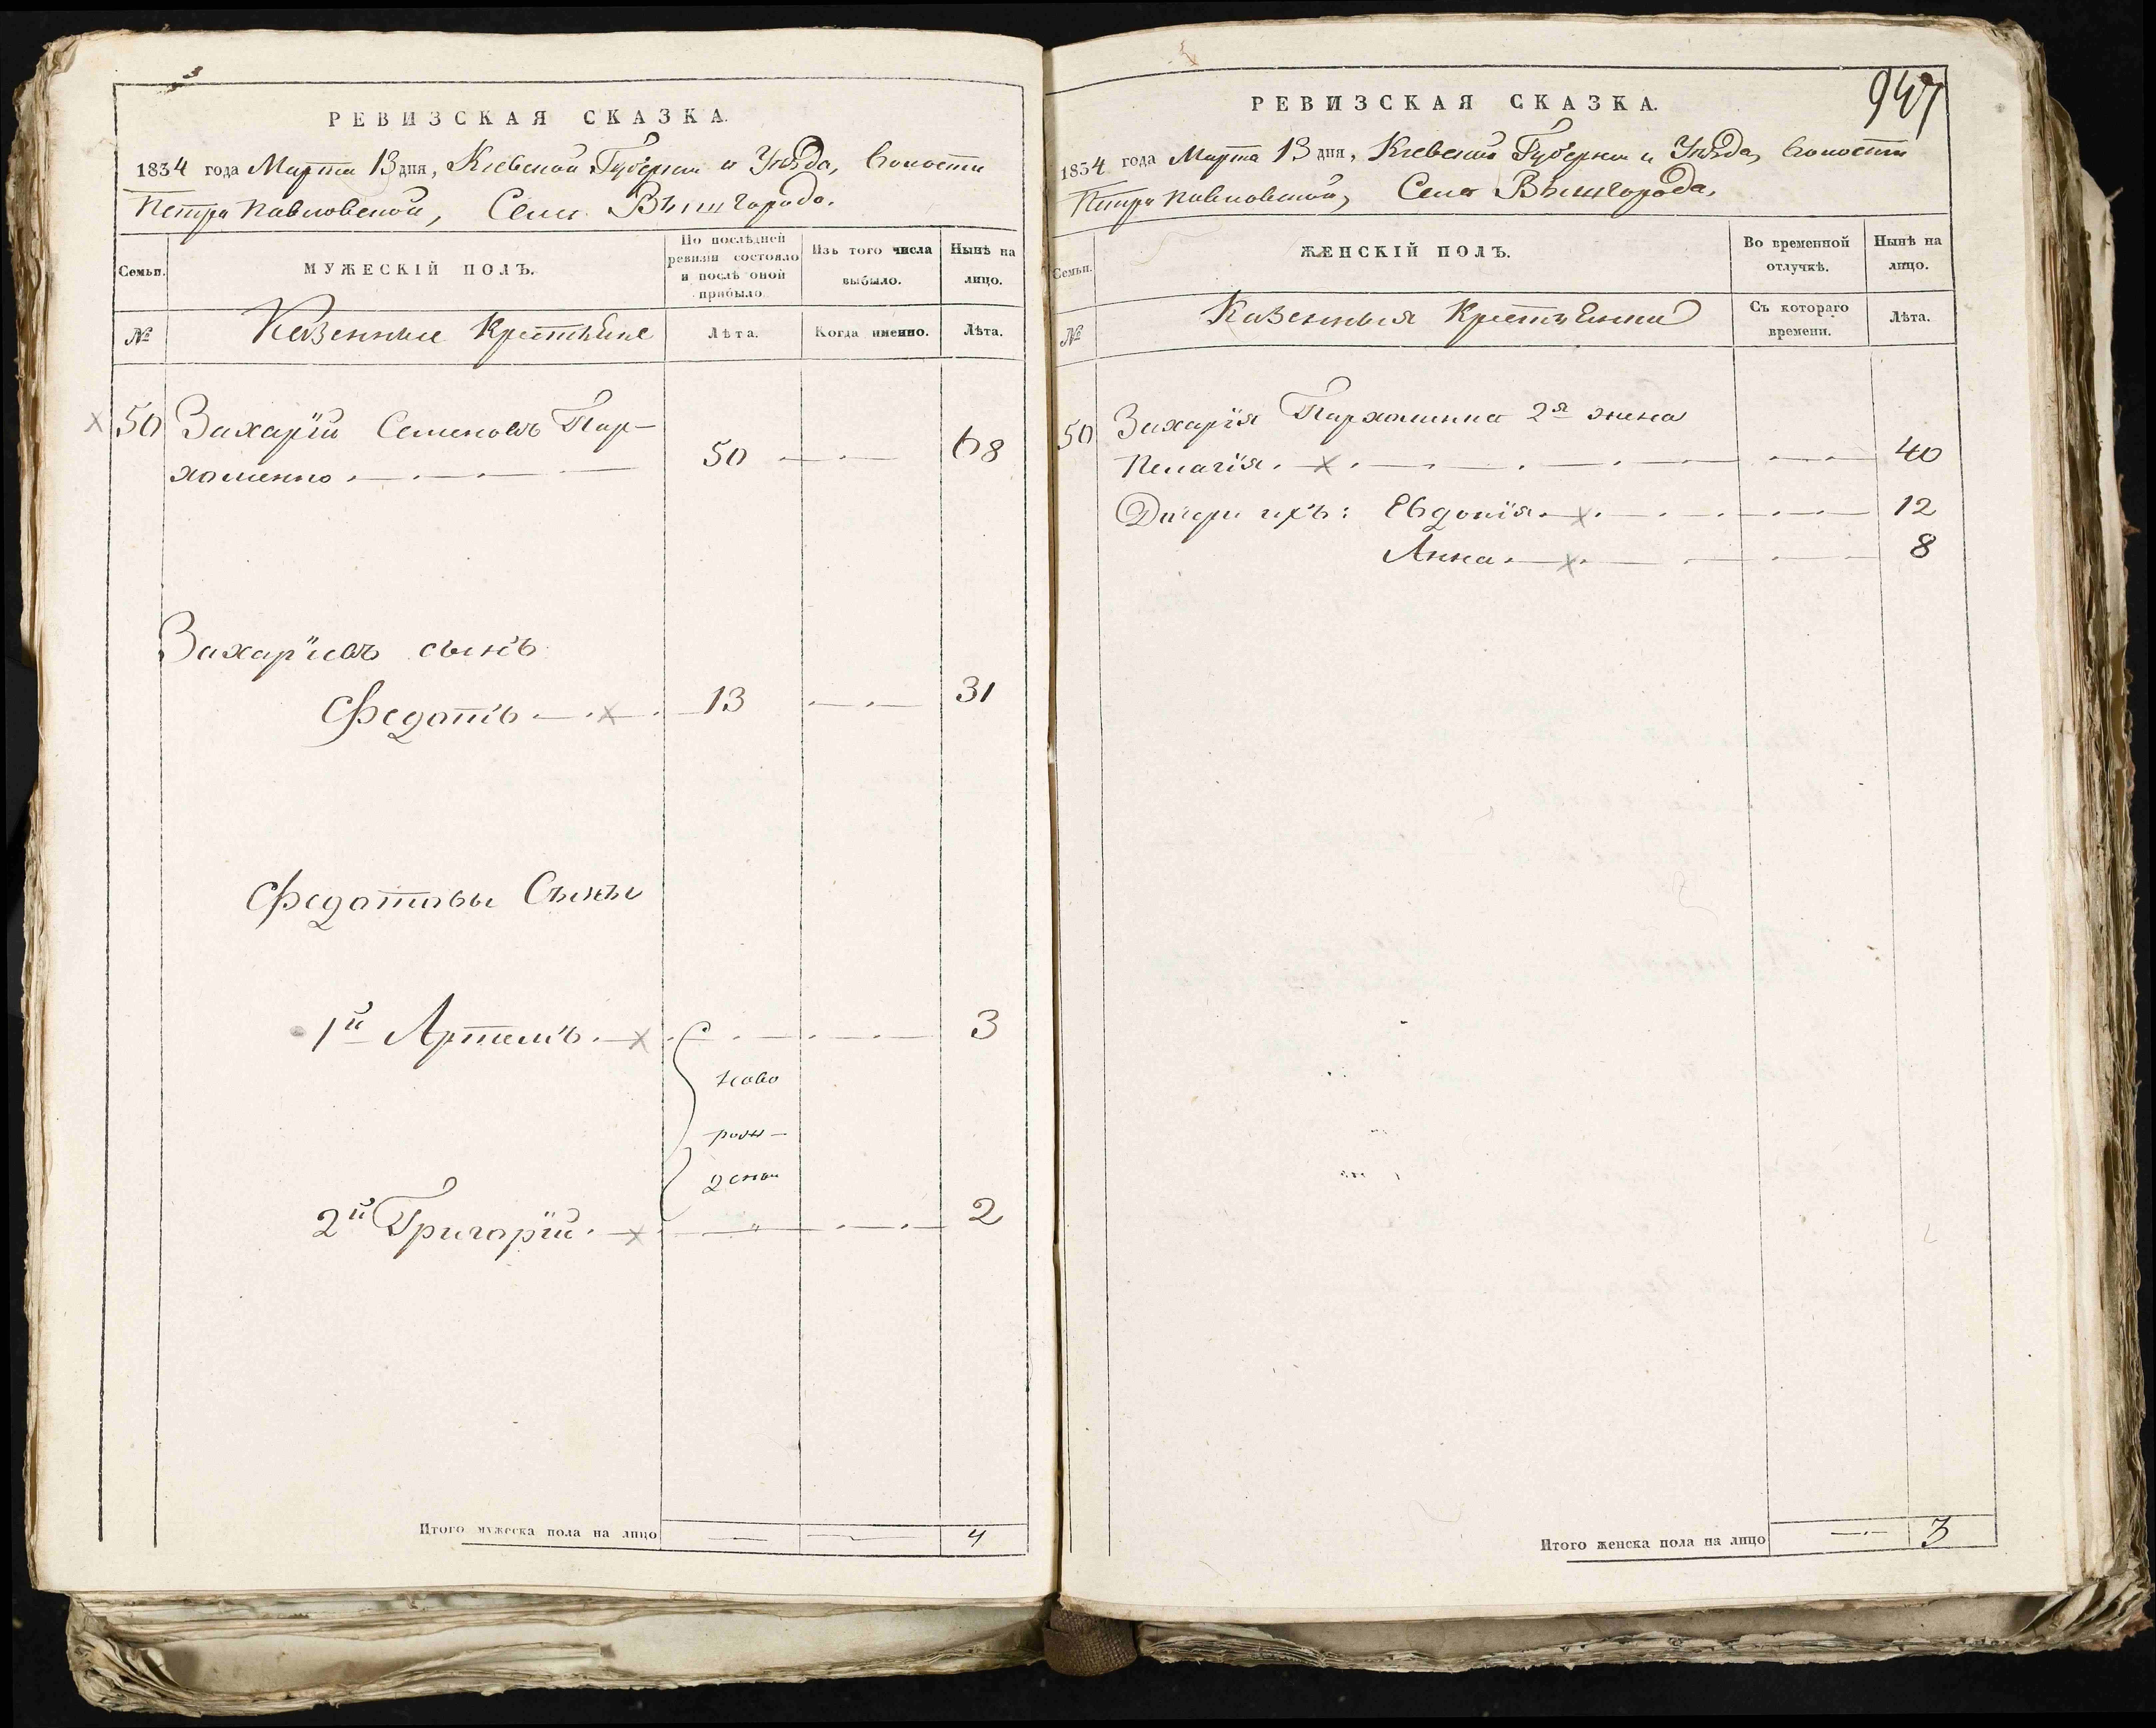 3
РЕВИЗСКАЯ СКАЗКА.
1834 года Марта 13 дня, Кіевской Губерніи и Уѣзда, волости
Петро павловской, Села Вышгорода.
Семьи.
МУЖЕСКІЙ ПОЛЪ.
По послѣдней ревизіи состояло и послѣ оной прибыло.
Изъ того числа выбыло.
Нынѣ на лицо.
№
Казенные Крестьяне
Лѣта.
Когда именно.
Лѣта.
50 Захарій Семеновъ Пар-
хоменко 50 68
Захаріевъ сынъ
Федотъ 13 31
Федотовы Сыны
1й Артемъ 3
ново
рож-
дены
2й Григорій 2
Итого мужеска пола на лицо 4
947
РЕВИЗСКАЯ СКАЗКА.
1834 года Марта 13 дня, Кіевской Губерніи и Уѣзда, волости
Петро павловской, Села Вышгорода.
Семьи.
ЖЕНСКІЙ ПОЛЪ.
Во временной отлучкѣ.
Нынѣ на лицо.
№
Казенныя Крестьянки
Съ котораго времени.
Лѣта.
50 Захарія Пархоменка 2я жена
Пелагія. 40
Дочери ихъ: Евдокія 12
Анна 8
Итого женска пола на лицо 3